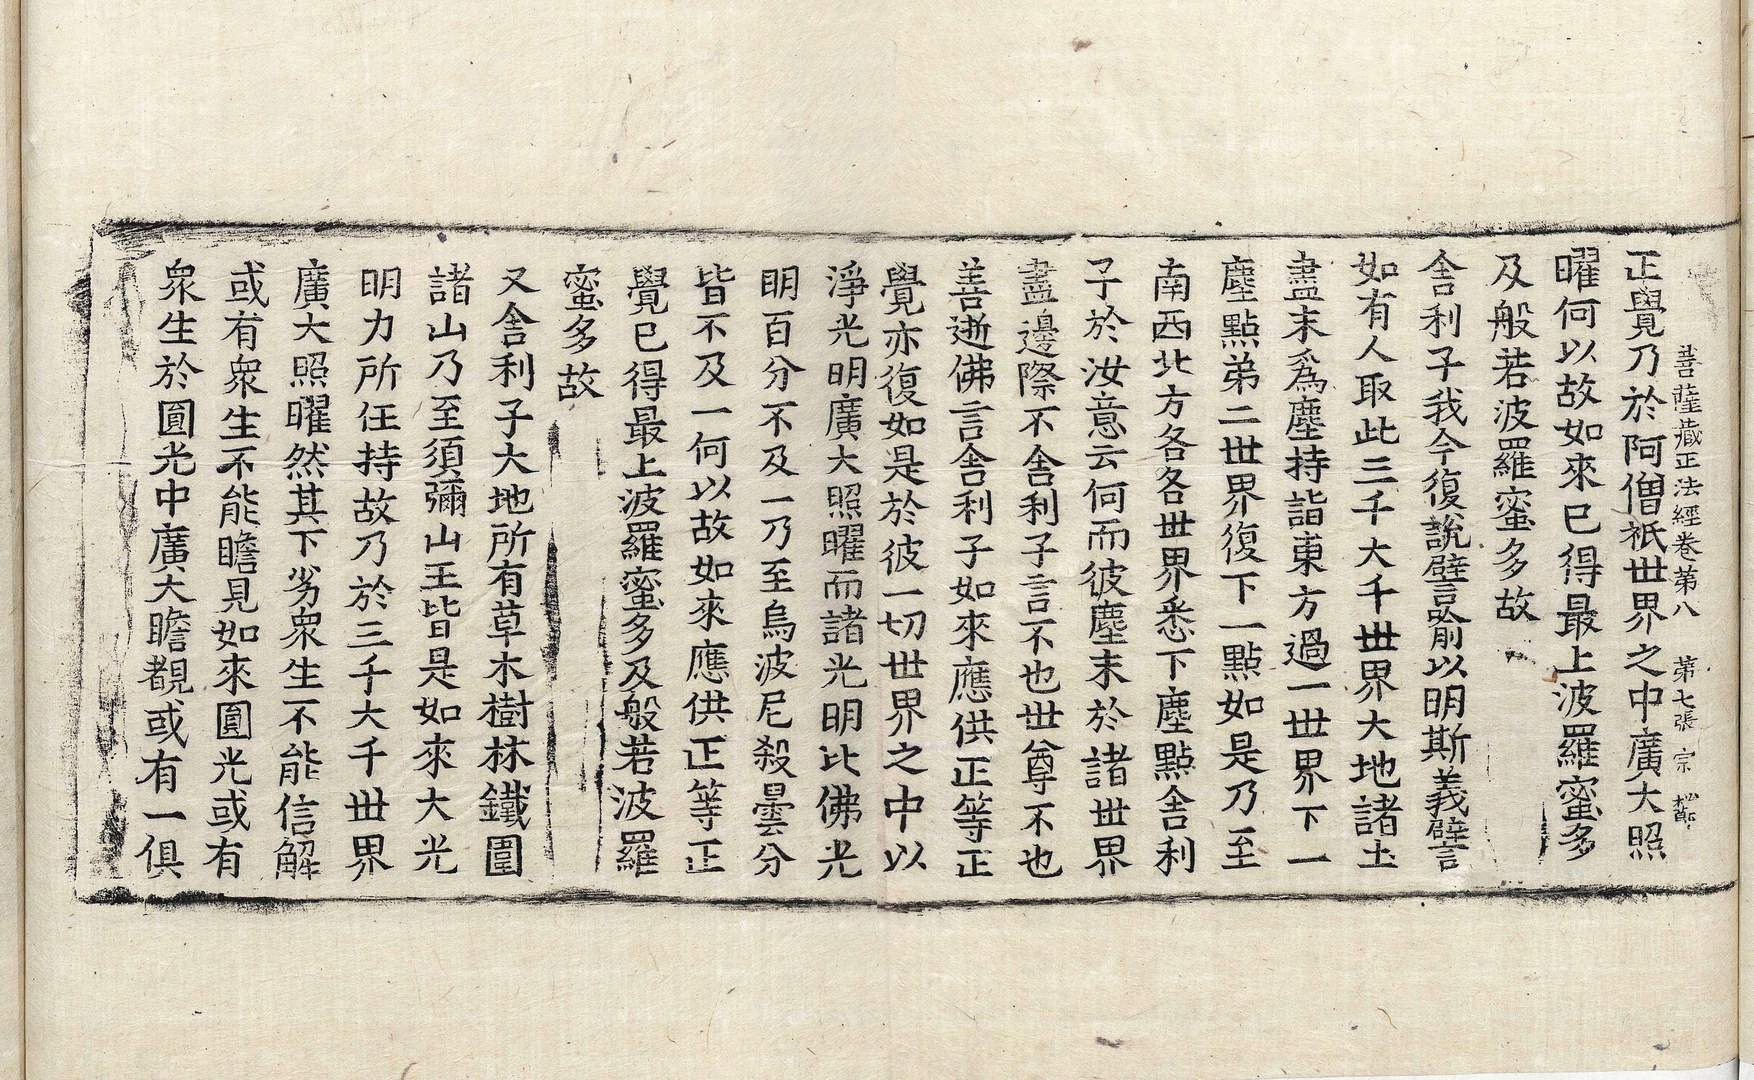 菩薩藏正法經卷第八　第七張　宗
正覺乃於阿僧祇世界之中廣大照
曜何以故如來已得最上波羅蜜多
及般若波羅蜜多故
舎利子我今復說譬喻以明斯義譬
如有人取此三千大千世界大地諸土
盡末爲塵持詣東方過一世界下一
塵點第二世界復下一點如是乃至
南西北方各各世界悉下塵點舎利
子於汝意云何而彼塵末於諸世界
盡邊際不舎利子言不也世尊不也
善逝佛言舎利子如來應供正等正
覺亦復如是於彼一切世界之中以
淨光明廣大照曜而諸光明比佛光
明百分不及一乃至烏波尼殺曇分
皆不及一何以故如來應供正等正
覺已得最上波羅蜜多及般若波羅
蜜多故
又舎利子大地所有草木樹林鐵圍
諸山乃至須彌山王皆是如來大光
明力所任持故乃於三千大千世界
廣大照曜然其下劣衆生不能信解
或有衆生不能瞻見如來圓光或有
衆生於圓光中廣大瞻覩或有一俱